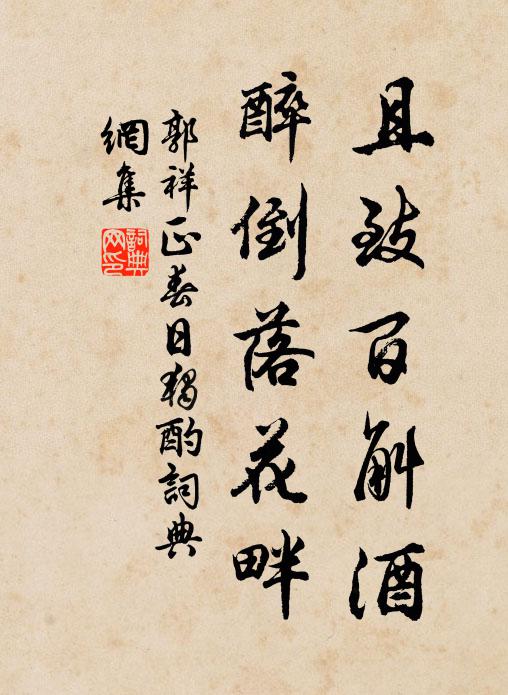 且致百斛酒
醉倒落花畔
郭祥正春日独酌詞典
網集
詞典网印